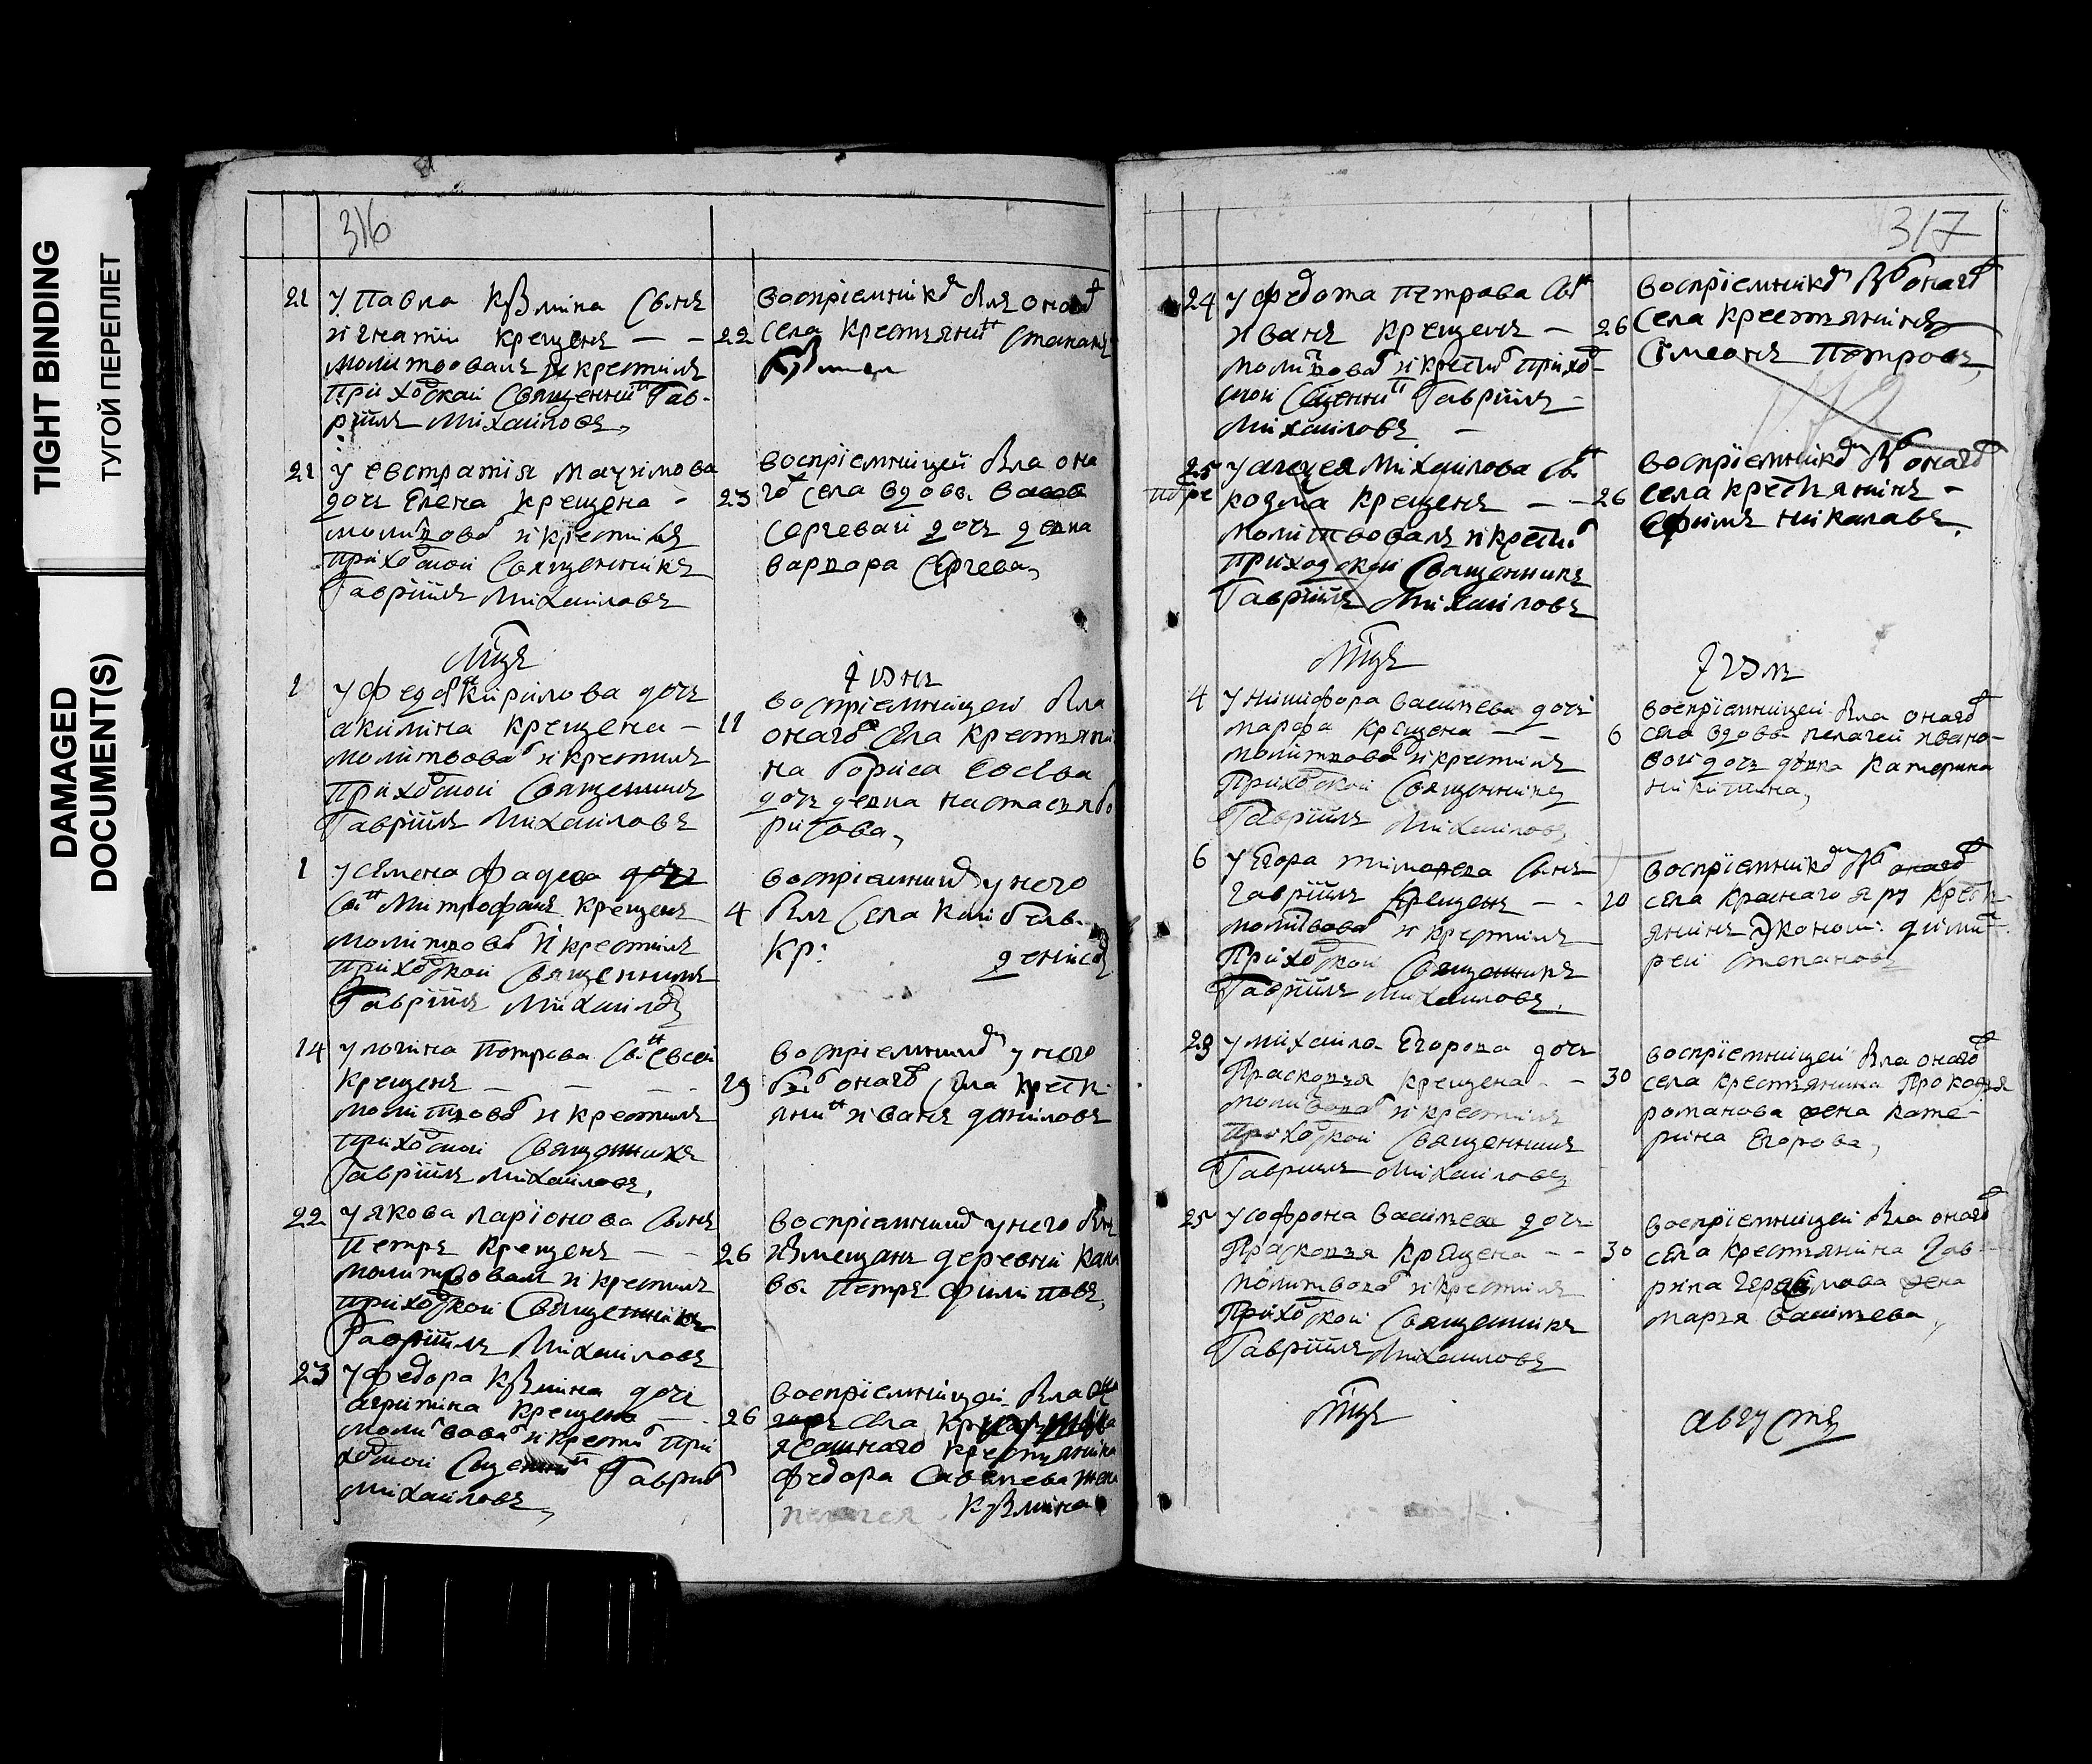 TIGHT BINDING
ТУГОЙ ПЕРЕПЛЕТ
DAMAGED
DOCUMENT(S)
316
21
у Павла Кузмина сынъ
игнатии крещенъ — —
молитвовалъ и крестилъ
приходскои священникъ Гав-
риилъ Михаиловъ,
22
воспрiемникомъ былъ онаго
села крестьянинъ степанъ
Кузмин
21
у евстратiя маѯимова
дочь Елена крещена -
молитвовалъ и крестилъ
приходскои священникъ
Гаврiилъ Михаиловъ
23
воспрiемницей была она
го села вдовы
сергеваи дочь девка
варвара Сергева,
мцъ
iюнь
1
у Федора Кирилова дочь
акилина крещена —
молитвовал и крестилъ
приходскои священникъ
Гаврiилъ Михаиловъ
11
воспрiемницей была
онаго села крестьяни
на бориса Евсева
дочь девка настасья бо
рисова,
1
у семена фадеева дочь
сынъ Митрофанъ крещенъ
молитвовал и крестилъ
приходскои священникъ
Гаврiилъ Михаилов
4
воспрiемником у него
былъ села
кр: денисов
14
у логина Петрова сынъ Евсей
крещенъ — — —
молитвовал и крестилъ
приходскои священникъ
Гаврiилъ Михаиловъ,
19
воспрiемником у него
был онаго села крестья
янинъ иванъ даниловъ
22
у якова ларiонова сынъ
петръ крещенъ — —
молитвовал и крестилъ
приходскои священникъ
Гаврiилъ Михаиловъ
26
воспрiемником у него былъ
деревни
Петръ филиповъ,
23
у федора Кузмина дочь
агрипина крещена
молитвовал и крестил при
ходскои священникъ Гавриил
Михаиловъ,
26
воспрiемницей была она
села
ясашнаго крестьянина
федора савелева жена
пелагея Кузмина
317
24
у федота петрова сынъ
иванъ крещенъ —
молитвовал и крестил прихо-
скои священник Гаврiилъ -
Михаиловъ —
26
воспрiемником был онаго
села крестьянинъ
Симеонъ Петровъ,
25
у алѯея михаилова сынъ
козма крещенъ — —
молитвовалъ и крестил
приходскои священникъ
Гаврiилъ Михаиловъ
26
воспрiемником был онаго
села крестьянинъ -
Ефимъ николавъ.
мцъ
iюль
4
у никифора васильева дочь
марфа крещена — —
молитвовал и крестилъ
приходскои священникъ
Гаврiилъ Михаиловъ
6
воспрiемницей была онаго
села вдовы пелагеи ивано-
вои дочь девка катерина
никитина,
6
у Егора тимофева сынъ
гаврiилъ крещенъ — -
молитвовал и крестилъ
приходскои священникъ
Гаврiилъ Михаиловъ.
10
воспрiемником был онаго
села краснаго яру кресть
янинъ Эконом: дими
реи степановъ
23
у михаила Егорова дочь
Праскопья крещена - -
молитвовал и крестилъ
приходскои священникъ
Гаврилъ Михаиловъ
30
воспрiемницей была онаго
села крестьянина Прокофья
романова жена кате-
рина Егорова,
25
у софрона васильева дочь
Праскопья крещена - -
молитвовал и крестилъ
приходскои священникъ
Гаврiилъ Михаиловъ
30
воспрiемницей была онаго
села крестьянина Гав-
рила герасимова жена
марья васильева,
мцъ
августъ